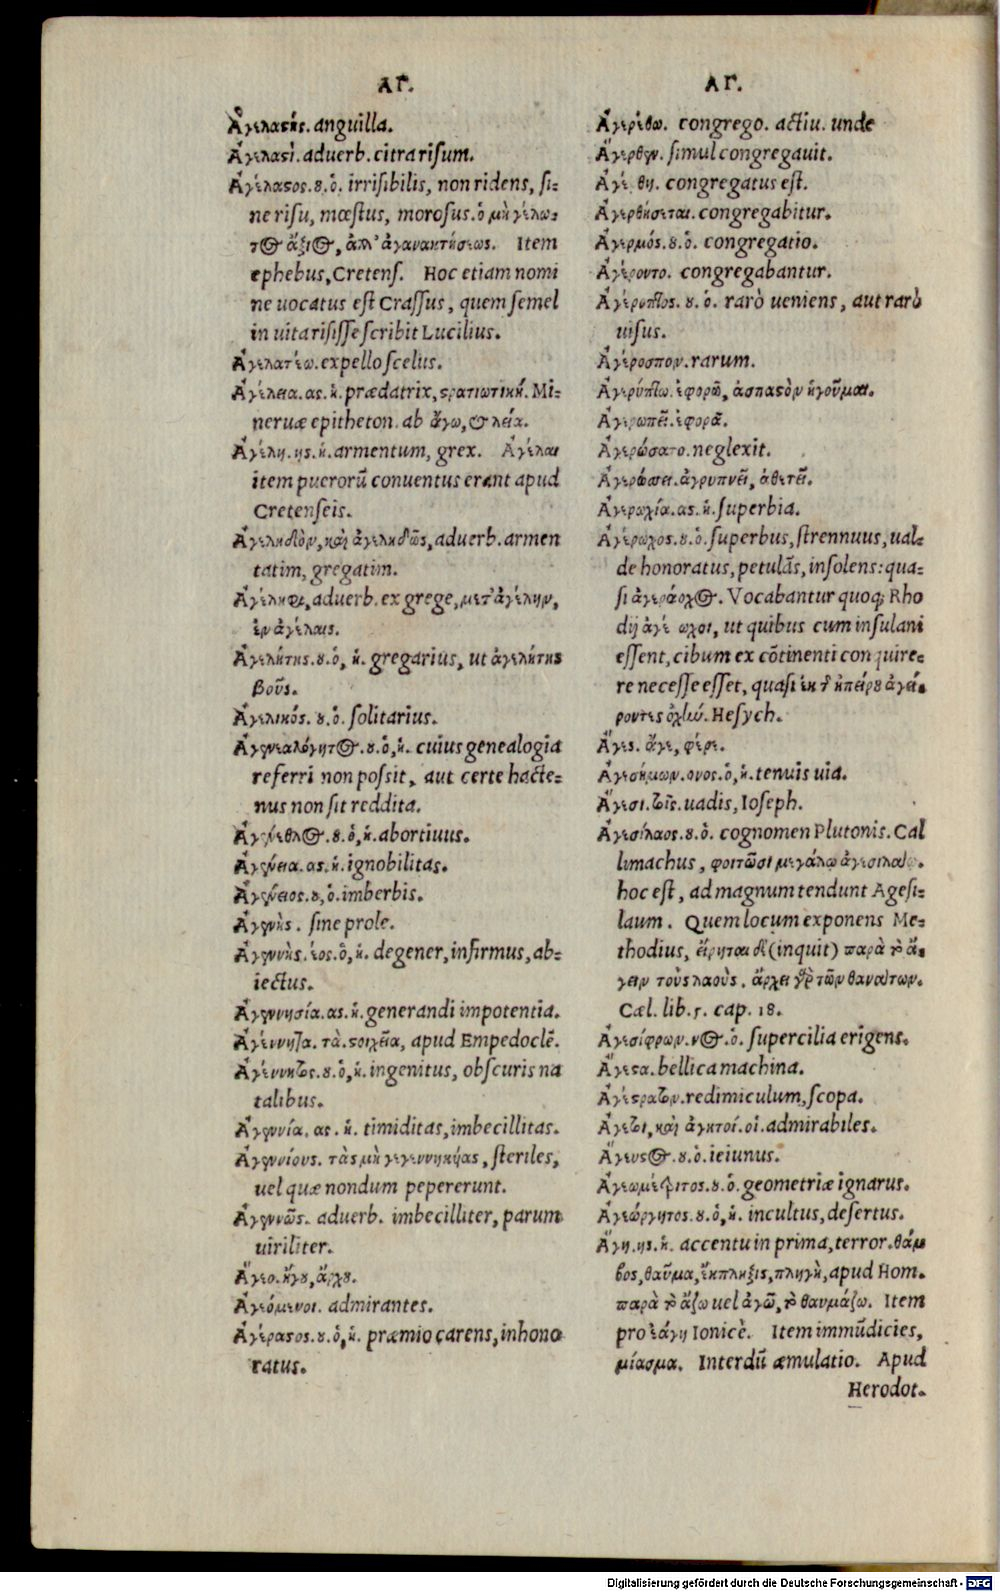 ΑΓ.
Ἀγελαστὴς. anguilla.
Ἀγελαστὶ. aduerb. citra risum.
Ἀγέλαστος. ου. ὁ. irrisibilis, non ridens, si-
ne risu, mœstus, morosus. ὁ μὴ γέλω-
τος ἄξιος, ἀλλ' ἀγανακτήσεως. Item
ephebus, Cretens. Hoc etiam nomi
ne uocatus est Crassus, quem semel
in uita risisse scribit Lucilius.
Ἀγελατέω. expello scelus.
Ἀγέλεια. ας. ἡ. prædatrix, στρατιωτική. Mi-
neruæ epitheton. ab ἄγω, & λεία.
Ἀγέλη. ης. ἡ. armentum, grex. Ἀγέλαι
item puerorū conuentus erant apud
Cretenseis.
Ἀγεληδὸν, καὶ ἀγεληδῶς, aduerb. armen
tatim, gregatim.
Ἀγέληθε, aduerb. ex grege, μετ' ἀγέλην,
ἐν ἀγέλαις.
Ἀγελήτης. ου. ὁ, ἡ. gregarius, ut ἀγελήτης
βοῦς.
Ἀγελικός. ου. ὁ. solitarius.
Ἀγενεαλόγητος. ου. ὁ, ἡ. cuius genealogia
referri non possit, aut certe hacte-
nus non sit reddita.
Ἀγένεθλος. ου. ὁ, ἡ. abortiuus.
Ἀγένεια. ας. ἡ. ignobilitas.
Ἀγένειος. ου, ὁ. imberbis.
Ἀγενὴς. sine prole.
Ἀγεννὴς. έος. ὁ, ἡ. degener, infirmus, ab-
iectus.
Ἀγεννησία. ας. ἡ. generandi impotentia.
Ἀγέννητα. τὰ. στοιχεῖα, apud Empedoclē.
Ἀγέννητος. ου. ὁ, ἡ. ingenitus, obscuris na
talibus.
Ἀγεννία. ας. ἡ. timiditas, imbecillitas.
Ἀγεννίους. τὰς μὴ γεγεννηκύας, steriles,
uel quæ nondum pepererunt.
Ἀγεννῶς. aduerb. imbecilliter, parum
uiriliter.
Ἄγεο. ἤγου, ἄρχου.
Ἀγεόμενοι. admirantes.
Ἀγέραστος. ου. ὁ, ἡ. præmio carens, inhono
ratus.
ΑΓ.
Ἀγερέθω. congrego. actiu. unde
Ἄγερθεν. simul congregauit.
Ἀγέ θη. congregatus est.
Ἀγερθήσεται. congregabitur.
Ἀγερμός. ου. ὁ. congregatio.
Ἀγέροντο. congregabantur.
Ἀγέρυπτος. ου. ὁ. rarò ueniens, aut rarò
uisus.
Ἀγέροσπον. rarum.
Ἀγερύπτω. ἐφορῶ, ἀσπαστὸν ἡγοῦμαι.
Ἀγερωπεῖ. ἐφορᾶ.
Ἀγερώσατο. neglexit.
Ἀγερώσσει. ἀγρυπνεῖ, ἀθετεῖ.
Ἀγερωχία. ας. ἡ. superbia.
Ἀγέρωχος. ου. ὁ. superbus, strennuus, ual-
de honoratus, petulās, insolens: qua-
si ἀγεράοχος. Vocabantur quoq; Rho
dij ἀγέ ωχοι, ut quibus cum insulani
essent, cibum ex cōtinenti conquire-
re necesse esset, quasi ἐκ τῆς ἠπείρου ἀγεί-
ροντες ὀχὴν. Hesych.
Ἄγες. ἄγε, φέρε.
Ἀγεσήμων. ονος. ὁ, ἡ. tenuis uia.
Ἄγεσι. τοῖς. uadis, Ioseph.
Ἀγεσίλαος. ου. ὁ. cognomen Plutonis. Cal
limachus, φοιτῶσι μεγάλῳ ἀγεσιλάῳ.
hoc est, ad magnum tendunt Agesi-
laum. Quem locum exponens Me-
thodius, εἴρηται δὲ (inquit) παρὰ τὸ ἄ-
γειν τοὺς λαοὺς. ἄρχει γὰρ τῶν θανάτων.
Cæl. lib. 5. cap. 18.
Ἀγεσίφρων. νος. ὁ. supercilia erigens.
Ἄγεστα. bellica machina.
Ἀγέστρατον. redimiculum, scopa.
Ἀγετοὶ, καὶ ἀγητοί. οἱ. admirabiles.
Ἄγευστος. ου. ὁ. ieiunus.
Ἀγεωμέτριτος. ου. ὁ. geometriæ ignarus.
Ἀγεώργητος. ου. ὁ, ἡ. incultus, desertus.
Ἄγη. ης. ἡ. accentu in prima, terror. θάμ
βος, θαῦμα, ἔκπληξις, πληγὴ, apud Hom.
παρὰ τὸ ἄζω uel ἀγῶ, τὸ θαυμάζω. Item
pro ἐάγη Ionicè. Item immūdicies,
μίασμα. Interdū æmulatio. Apud
Herodot.
Digitalisierung gefördert durch die Deutsche Forschungsgemeinschaft - DFG